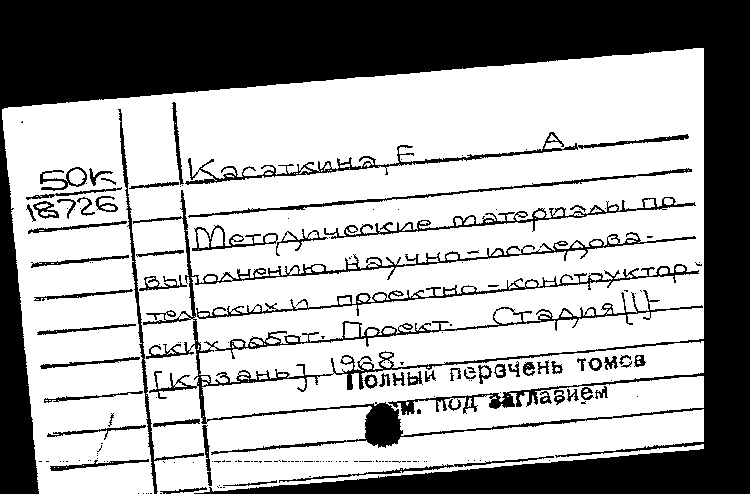 50К
18726
Касаткина, Е А.
Методические материалы по
выполнению научно-исследова-
тельских и проектно-конструктор-
ских работ. Проект. Стадия [1]-
[Казань], 1968.
Полный перечень томов
см. под заглавием